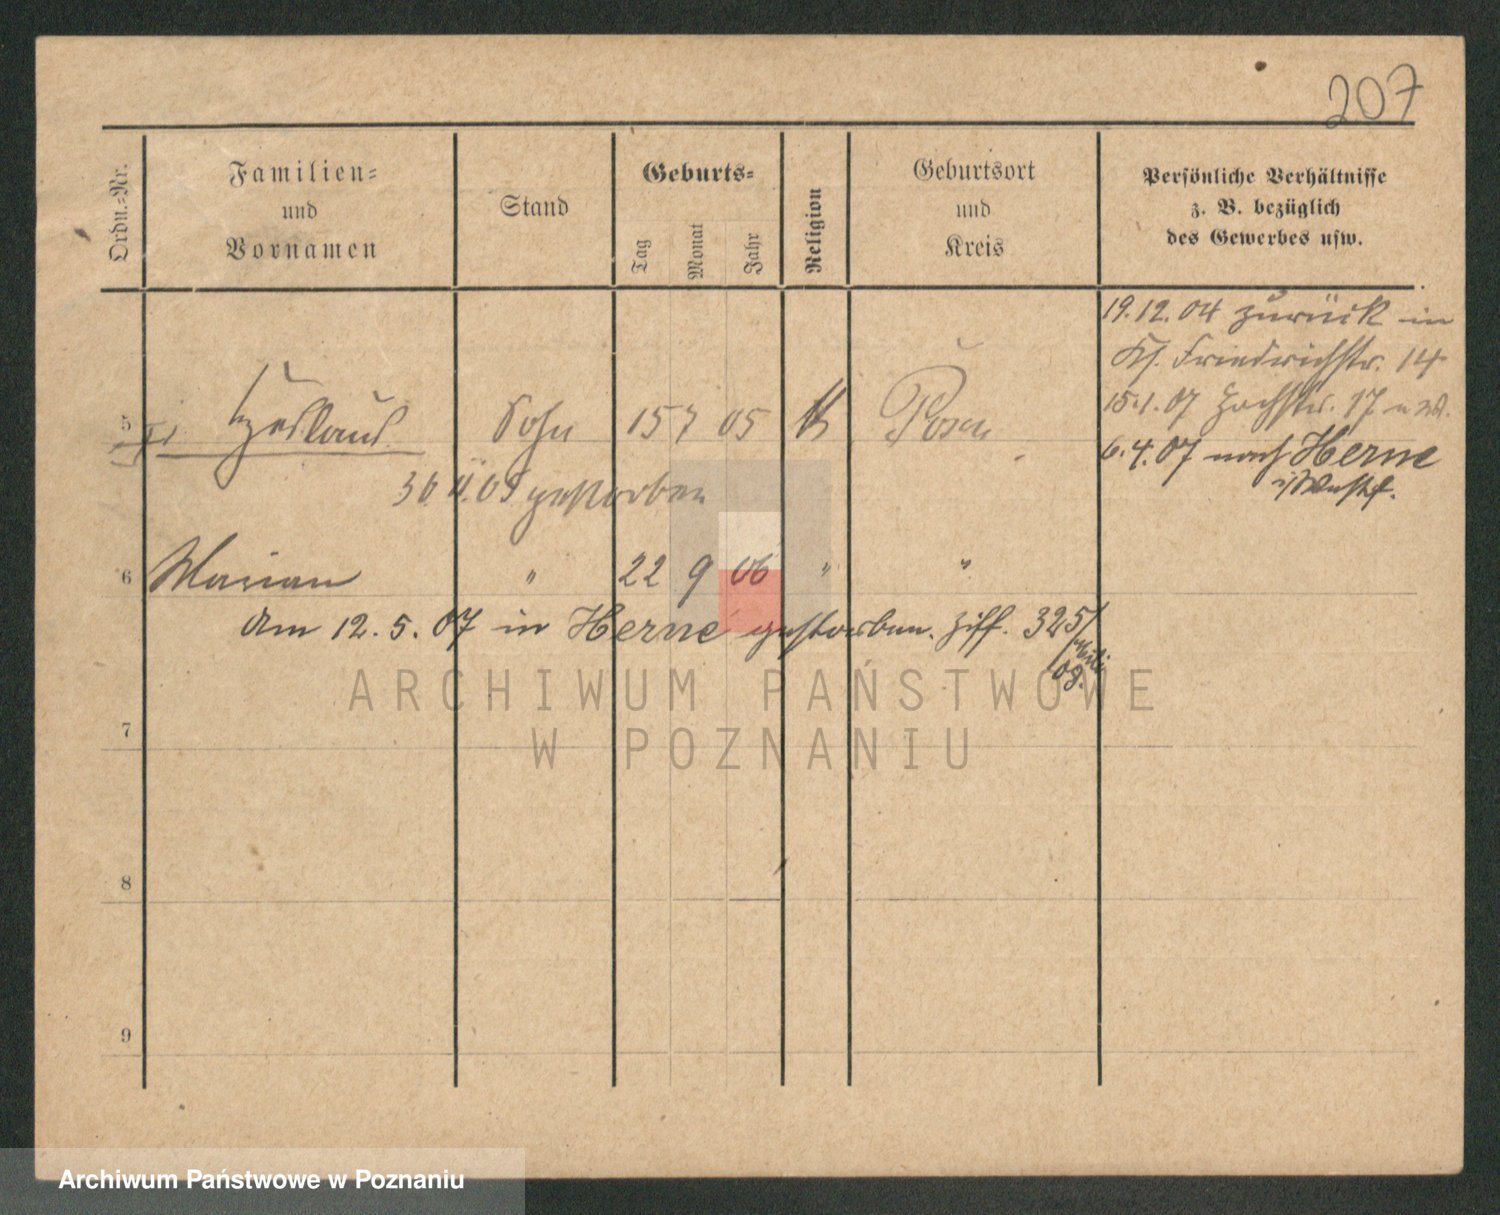 207
Ordn.-Nr.
Familien-
und
Vornamen
Stand
Geburts-
Tag
Monat
Jahr
Religion
Geburtsort
und
Kreis
Persönliche Verhältnisse
z. B. bezüglich
des Gewerbes usw.
19.12.04 zurück in
Friedrichstr. 14
15.1.07 17
6.4.07 nach Herne
i/Westf.
5 Sohn 15 7 05 Posen
gestorben
6 Marian " 22 9 06 " "
Am 12.5.07 in Herne gestorben. Ziff. 325/
7
8
9
ARCHIWUM PAŃSTWOWE
W POZNANIU
Archiwum Państwowe w Poznaniu